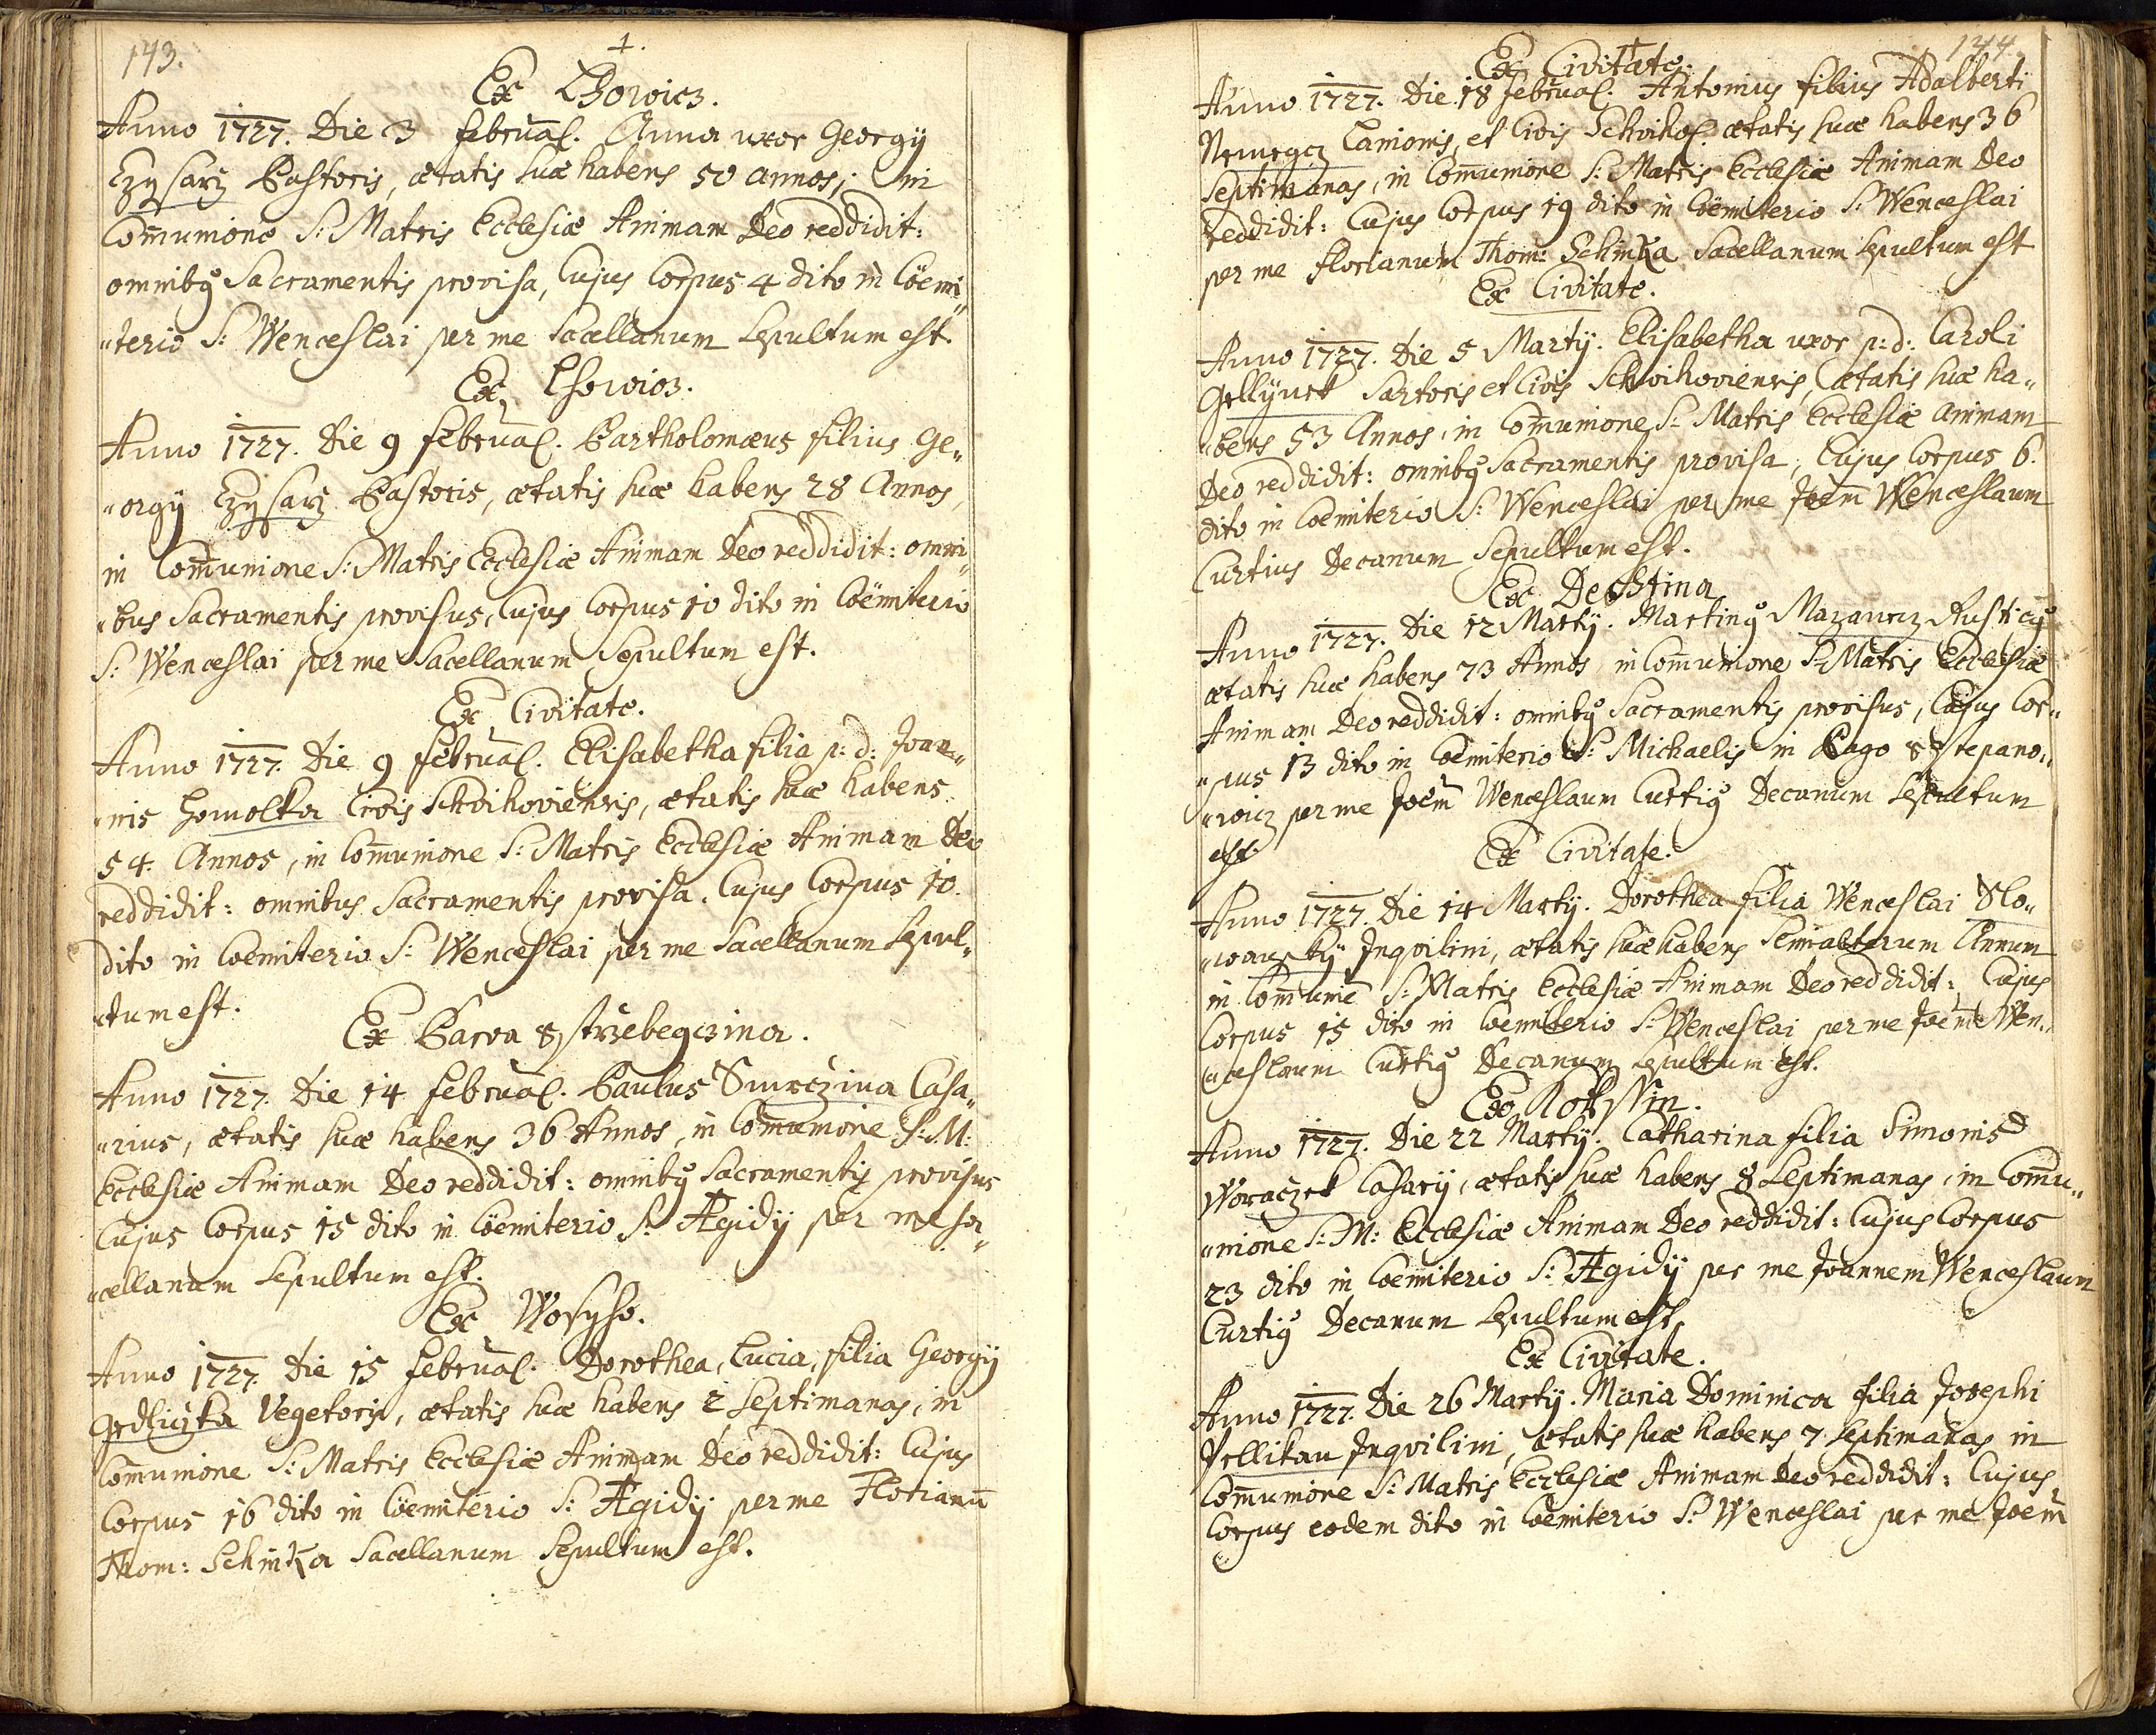 143.
†.
Ex Lhowicz.
Anno 1727. Die 3 februar. Anna uxor Georgÿ
Pastoris, ætatis suæ habens 50 annos, in
Com̄unione S: Matris Ecclesiæ Animam Deo reddidit:
omnibꝰ Sacramentis provisa, Cujus Corpus 4 dito in Cöemi„
„terio S: Wenceslai per me Sacellanum Sepultum est.
Ex Lhowicz.
Anno 1727. Die 9 februar. Bartholomæus filius Ge„
„orgÿ Pastoris, ætatis suæ habens 28 Annos,
in Com̄unione S: Matris Ecclesiæ Animam Deo reddidit: omni„
„bus Sacramentis provisus, Cujus Corpus 10 dito in Cöemiterio
S: Wenceslai per me Sacellanum Sepultum est.
Ex Civitate.
Anno 1727. Die 9 februar. Elisabetha filia p: d: Joan„
„nis Homolka Civis Schvihoviensis, ætatis suæ habens
54. Annos, in Com̄unione S: Matris Ecclesiæ Animam Deo
reddidit: omnibus Sacramentis provisa. Cujus Corpus 10.
dito in Coemiterio S: Wenceslai per me Sacellanum Sepul„
„tum est.
Ex Parva
Anno 1727. Die 14 februar. Paulus Smrczina Casa„
„rius, ætatis suæ habens 36 Annos, in Com̄unione S: M:
Ecclesiæ Animam Deo reddidit: omnibꝰ Sacramentis provisus
Cujus Corpus 15 dito in Cöemiterio S: Ægidÿ per me sa„
„cellanum Sepultum est.
Ex Wosyho.
Anno 1727. Die 15 februar. Dorothea, Lucia, filia Georgÿ
Gedliczka Vegetoris, ætatis suæ habens 2 Septimanas, in
Com̄unione S: Matris Ecclesiæ Animam Deo reddidit: Cujus
Corpus 16 dito in Cöemiterio S: Ægidÿ per me Florianū
Thom: Schinka Sacellanum Sepultum est.
144.
†
Ex Civitate.
Anno 1727. Die 18 februar. Antonius filius Adalberti
Lanionis, et Civis Schvihov. ætatis suæ habens 36
Septimanas, in Com̄unione S: Matris Ecclesiæ Animam Deo
reddidit: Cujus Corpus 19 dito in Cöemiterio S: Wenceslai
per me Florianum Thom: Schinka Sacellanum Sepultum est
Ex Civitate.
Anno 1727. Die 5 Martÿ. Elisabetha uxor p: d: Caroli
Sartoris et Civis Schvihoviensis, ætatis suæ ha„
„bens 53 Annos, in Com̄unione S: Matris Ecclesiæ Animam
Deo reddidit: omnibꝰ Sacramentis provisa, Cujus Corpus 6.
dito in Coemiterio S: Wenceslai per me Joēm Wenceslaum
Curtius Decanum Sepultum est.
Ex Dechtina
Anno 1727. Die 12 Martÿ. Martinꝰ Mazanecz Rusticꝰ
ætatis suæ habens 73 Annos, in Com̄unione S: Matris Ecclesiæ
Animam Deo reddidit: omnibꝰ Sacramentis provisus, Cujus Cor„
„pus 13 dito in Coemiterio S: Michaelis in Pago Sstepano„
„wicz per me Joēm Wenceslaum Curtiꝰ Decanum Sepultum
est.
Ex Civitate.
Anno 1727. Die 14 Martÿ. Dorothea filia Wenceslai Slo„
„wansky Inqvilini, ætatis suæ habens Semialterum Annum
in Com̄uniē S: Matris Ecclesiæ Animam Deo reddidit: Cujus
Corpus 15 dito in Coemiterio S: Wenceslai per me Joēm Wen„
„ceslaum Curtiꝰ Decanum Sepultum est.
Ex Rokssin.
Anno 1727. Die 22 Martÿ. Catharina filia Simonis
Woraczek Casarÿ, ætatis suæ habens 8 Septimanas, in Com̄u„
„nione S: M: Ecclesiæ Animam Deo reddidit: Cujus Corpus
23 dito in Coemiterio S: Ægidÿ per me Joannem Wenceslaum
Curtiꝰ Decanum Sepultum est.
Ex Civitate.
Anno 1727. Die 26 Martÿ. Maria Dominica filia Josephi
Pellikan Inqvilini, ætatis suæ habens 7 Septimanas in
Com̄unione S: Matris Ecclesiæ Animam Deo reddidit: Cujus
Corpus eodem dito in Coemiterio S: Wenceslai per me Joēm